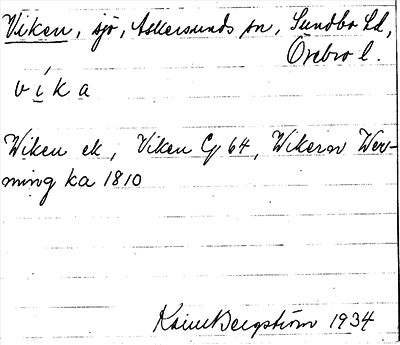 Viken, sjö, Askersunds sn, Sundbo hd,
Örebro l.
víka
Wiken ek, Viken Cy 64, Wikern Wer-
ming ka 1810
Karin Bergström 1934